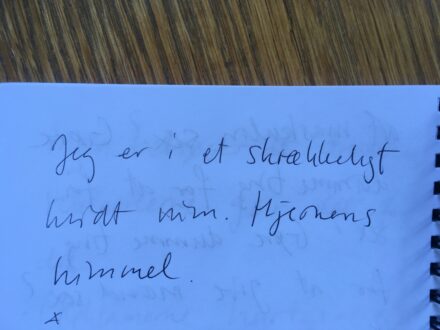 Jeg er i et skrækkeligt
hvidt rum. Hjernens
himmel.
x